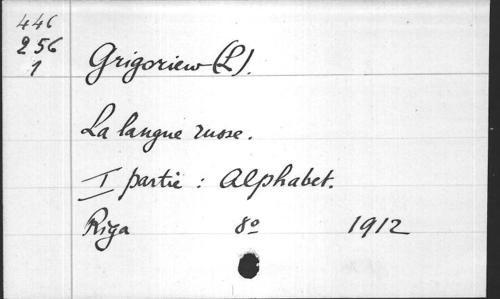 446
256
1
Grigoriew (L).
La langue russe.
I partie : Alphabet.
Riga 8º 1912